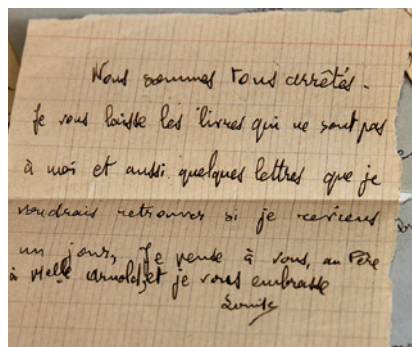 Nous sommes tous arrêtés.
Je vous laisse les livres qui ne sont pas
à moi et aussi quelques lettres que je
voudrais retrouver si je reviens
un jour, Je pense à vous, au Père
à Melle Arnold, et je vous embrasse
Louise